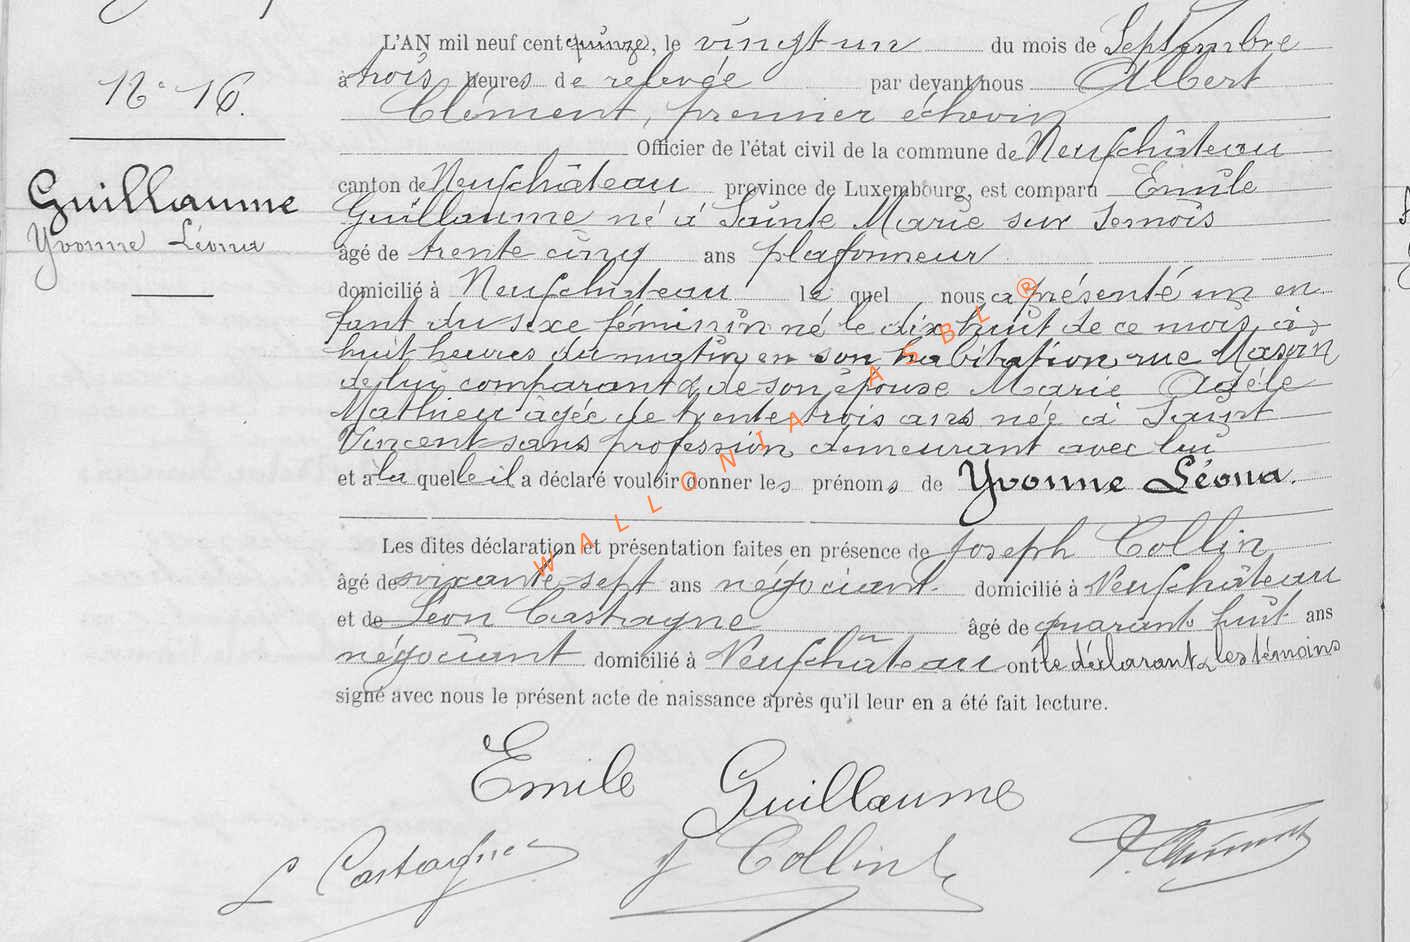 L'AN mil neuf cent quinze, le vingt un du mois de Septembre
N° 16.
à trois heures de relevée par devant nous Albert
Clément, premier échevin
Officier de l'état civil de la commune de Neufchâteau
canton de Neufchâteau province de Luxembourg, est comparu Emile
Guillaume
Yvonne Léona
Guillaume né à Sainte Marie sur Semois
âgé de trente cinq ans plafonneur
domicilié à Neufchâteau le quel nous a présenté un en
fant du sexe féminin né le dix huit de ce mois, à
huit heures du matin en son habitation rue
de lui comparant & de son épouse Marie Adèle
Mathieu âgée de trente trois ans née à Saint
Vincent sans profession demeurant avec lui
et a la quelle il a déclaré vouloir donner les prénoms de Yvonne Léona.
Les dites déclaration et présentation faites en présence de Joseph Collin
âgé de soixante-sept ans négociant domicilié à Neufchâteau
et de Léon Castagne âgé de quarante huit ans
négociant domicilié à Neufchâteau ont le déclarant & les témoins
signé avec nous le présent acte de naissance après qu'il leur en a été fait lecture.
Emile Guillaume
L Castagne J Collin
WALLONIA ASBL ®